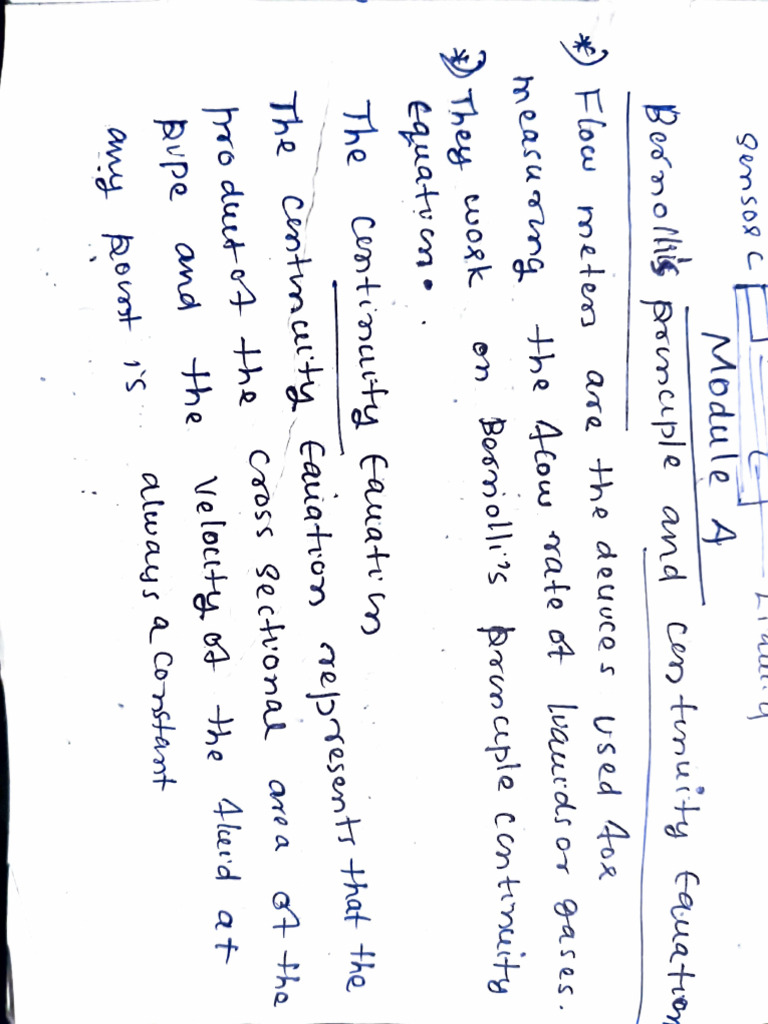 sensor
Module 4
Bernolli's principle and continuity Equation
*) Flow meters are the devices used for
measuring the flow rate of liquids or gases.
*) They work on Bernolli's principle continuity
Equation.
The continuity Equation
The continuity Equation represents that the
product of the cross sectional area of the
pipe and the velocity of the fluid at
any point is always a constant